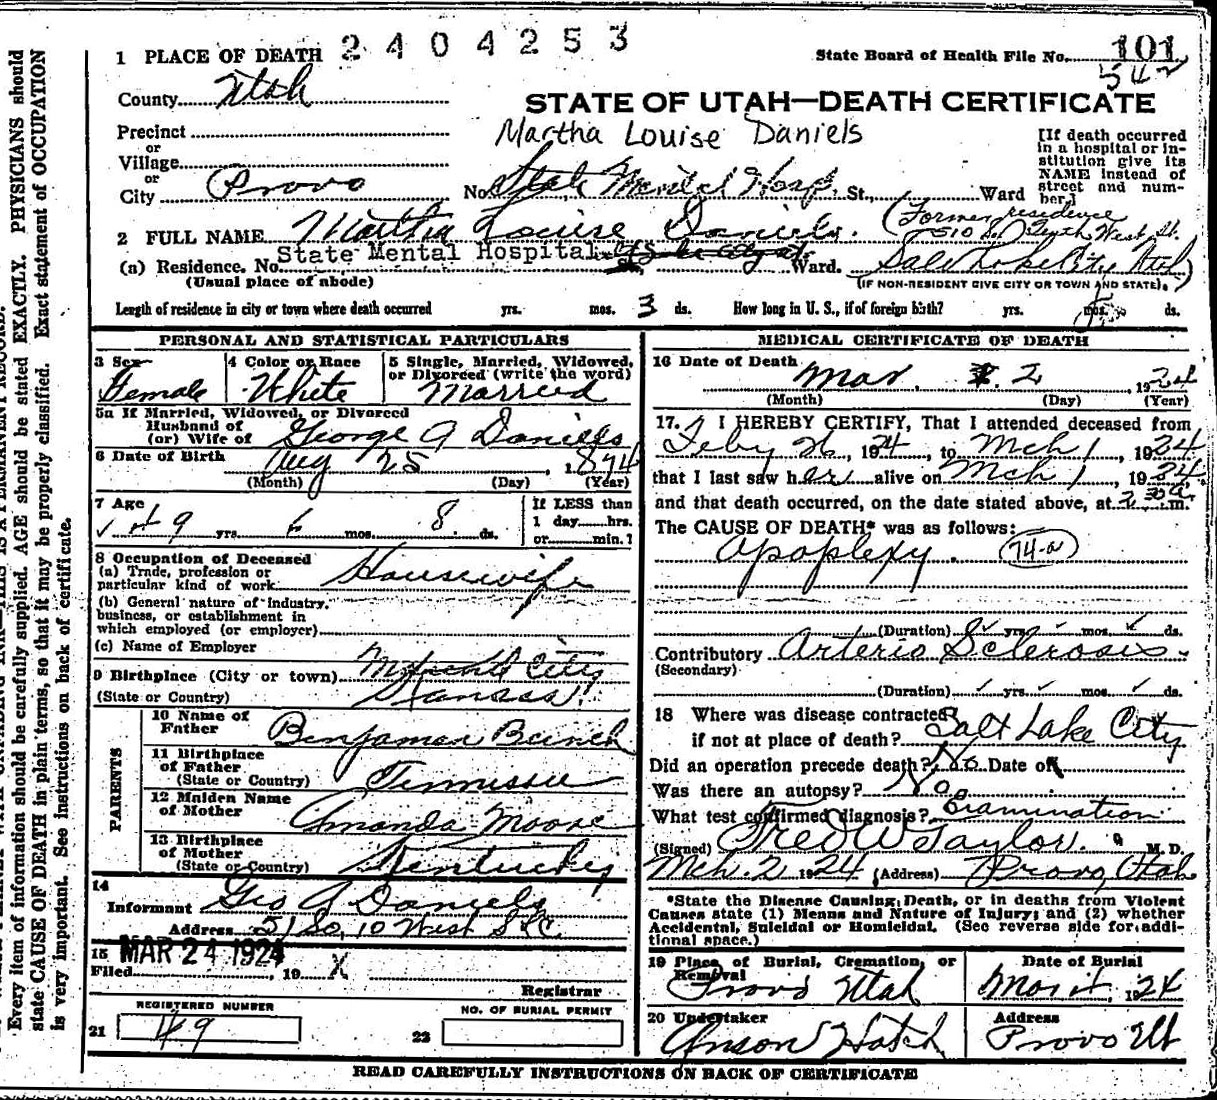 1 PLACE OF DEATH 2404253
State Board of Health File No. 101
542
County Utah
STATE OF UTAH—DEATH CERTIFICATE
Martha Louise Daniels
Precinct
or
Village
or
City Provo
No. State Mental Hosp. St., Ward
[If death occurred
in a hospital or in-
stitution give its
NAME instead of
street and num-
ber.]
2 FULL NAME Martha Louise Daniels.
(Former residence
510 So. Tenth West St.
Salt Lake City Utah)
(a) Residence. No. State Mental Hospital Ward.
(Usual place of abode)
(IF NON-RESIDENT GIVE CITY OR TOWN AND STATE).
Length of residence in city or town where death occurred yrs. mos. 3 ds. How long in U. S., if of foreign birth? yrs. mos. ds.
PERSONAL AND STATISTICAL PARTICULARS
3 Sex
Female
4 Color or Race
White
5 Single, Married, Widowed,
or Divorced (write the word)
Married
5a If Married, Widowed, or Divorced
Husband of
(or) Wife of George A Daniels
6 Date of Birth Aug 25, 1874
(Month) (Day) (Year)
7 Age
49 yrs. 6 mos. 8 ds.
If LESS than
1 day hrs.
or min.?
8 Occupation of Deceased
(a) Trade, profession or
particular kind of work Housewife
(b) General nature of industry,
business, or establishment in
which employed (or employer)
(c) Name of Employer
9 Birthplace (City or town) City
(State or Country) Kansas
PARENTS
10 Name of
Father Benjamen
11 Birthplace
of Father
(State or Country) Tennissee
12 Maiden Name
of Mother Amanda Moore
13 Birthplace
of Mother
(State or Country) Kentucky
14
Informant Geo A Daniels
Address 51 So, 10 West S L C.
15 MAR 24 1924
Filed , 19 X
Registrar
REGISTERED NUMBER
21 49
NO. OF BURIAL PERMIT
22
MEDICAL CERTIFICATE OF DEATH
16 Date of Death Mar. 2 1924
(Month) (Day) (Year)
17. I HEREBY CERTIFY, That I attended deceased from
Feby 26, 1924, to Mch 1, 1924
that I last saw her alive on Mch 1, 1924
and that death occurred, on the date stated above, at 2 30 a. m.
The CAUSE OF DEATH* was as follows:
Apoplexy. 74-a
(Duration) yrs. mos. ds.
Contributory Arterio Sclerosis
(Secondary)
(Duration) yrs. mos. ds.
18 Where was disease contracted
if not at place of death? Salt Lake City
Did an operation precede death? No Date of
Was there an autopsy? No.
What test confirmed diagnosis? Examination
(Signed) Fred W Taylor. M. D.
Mch. 2 1924 (Address) Provo, Utah
*State the Disease Causing Death, or in deaths from Violent
Causes state (1) Means and Nature of Injury; and (2) whether
Accidental, Suicidal or Homicidal. (See reverse side for addi-
tional space.)
19 Place of Burial, Cremation, or
Removal
Provo Utah
Date of Burial
Mar 4, 1924
20 Undertaker
Anson Hatch
Address
Provo Ut
READ CAREFULLY INSTRUCTIONS ON BACK OF CERTIFICATE
Every item of information should be carefully supplied. AGE should be stated EXACTLY. PHYSICIANS should
state CAUSE OF DEATH in plain terms, so that it may be properly classified. Exact statement of OCCUPATION
is very important. See instructions on back of certificate.